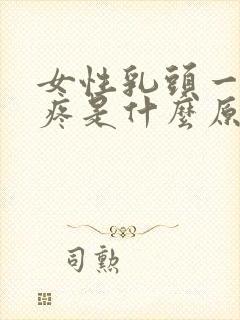 女性乳頭一
疼是什麼原
司勲